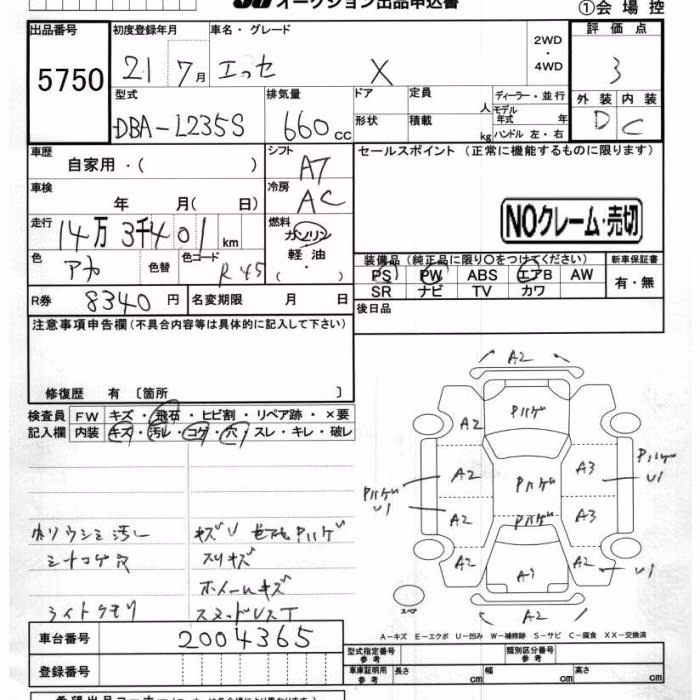 オークション出品申込書
①会場控
出品番号 初度登録年月 車名・グレード 2WD ・ 4WD 評価点
5750 21 7月 エッセ X 3
型式 排気量 ドア 定員 人 ディーラー・並行 モデル年式 年 外装 内装
DBA-L235S 660cc 形状 積載 kg ハンドル 左・右 D C
車歴 自家用・( ) シフト AT セールスポイント (正常に機能するものに限ります)
車検 年 月( 日) 冷房 AC
NOクレーム・売切
走行 14万3千401km 燃料 ガソリン 軽油 ・ ( )
色 色替 色コード R45
装備品 (純正品に限り○をつけてください) 新車保証書
PS PW ABS エアB AW 有・無
SR ナビ TV カワ
R券 8340円 名変期限 月 日 後日品
注意事項申告欄 (不具合内容等は具体的に記入して下さい)
修復歴 有 〔箇所 〕
検査員 FW キズ・飛石・ヒビ割・リペア跡・×要
記入欄 内装 キズ・汚レ・コゲ・穴・スレ・キレ・破レ
A2
Pハゲ
A2
A2 A3 Pハゲ U1
Pハゲ U1 Pハゲ
A2 Pハゲ A3
A2 A2 U1
A2
スペア
汚レ キズU Pハゲ
シートコゲ穴 スリキズ
ホイールキズ
ライトクモリ
A-キズ E-エクボ U-凹み W-補修跡 S-サビ C-腐食 XX-交換済
車台番号 2004365
型式指定番号 参考 類別区分番号 参考
登録番号 車庫証明用 参考 長さ cm 幅 cm 高さ cm
希望出品コーナー